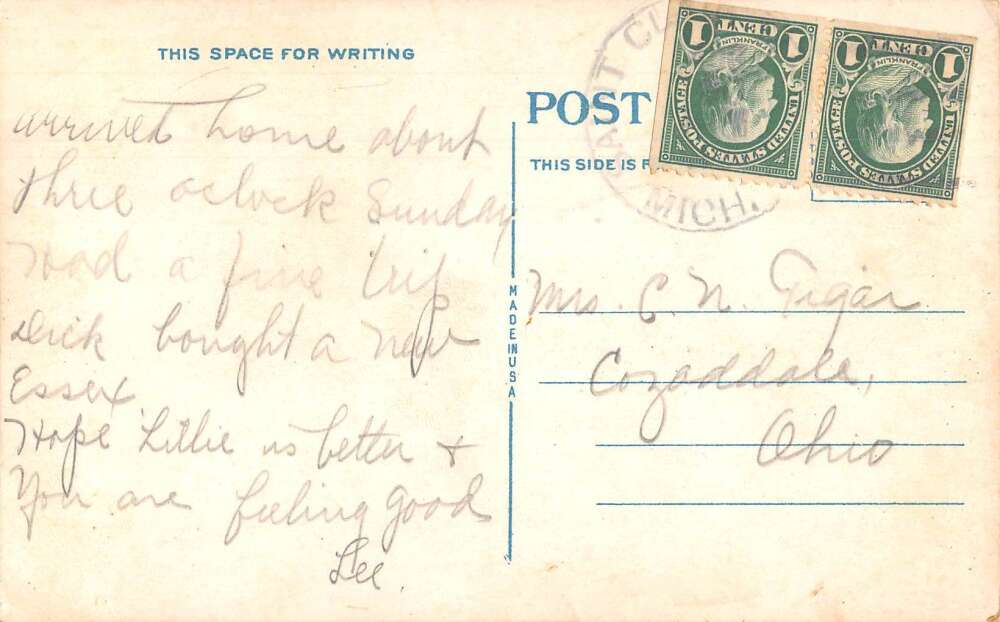 THIS SPACE FOR WRITING
arrived home about
three oclock Sunday
Had a fine trip
Dick bought a new
Essex
Hope Lillie is better +
You are feeling good
Lee.
POST
THIS SIDE IS F
MADE IN USA
MICH.
1 CENT 1
FRANKLIN
UNITED STATES POSTAGE
1 CENT 1
FRANKLIN
UNITED STATES POSTAGE
Mrs. C. N. Tigar
Cozaddale,
Ohio